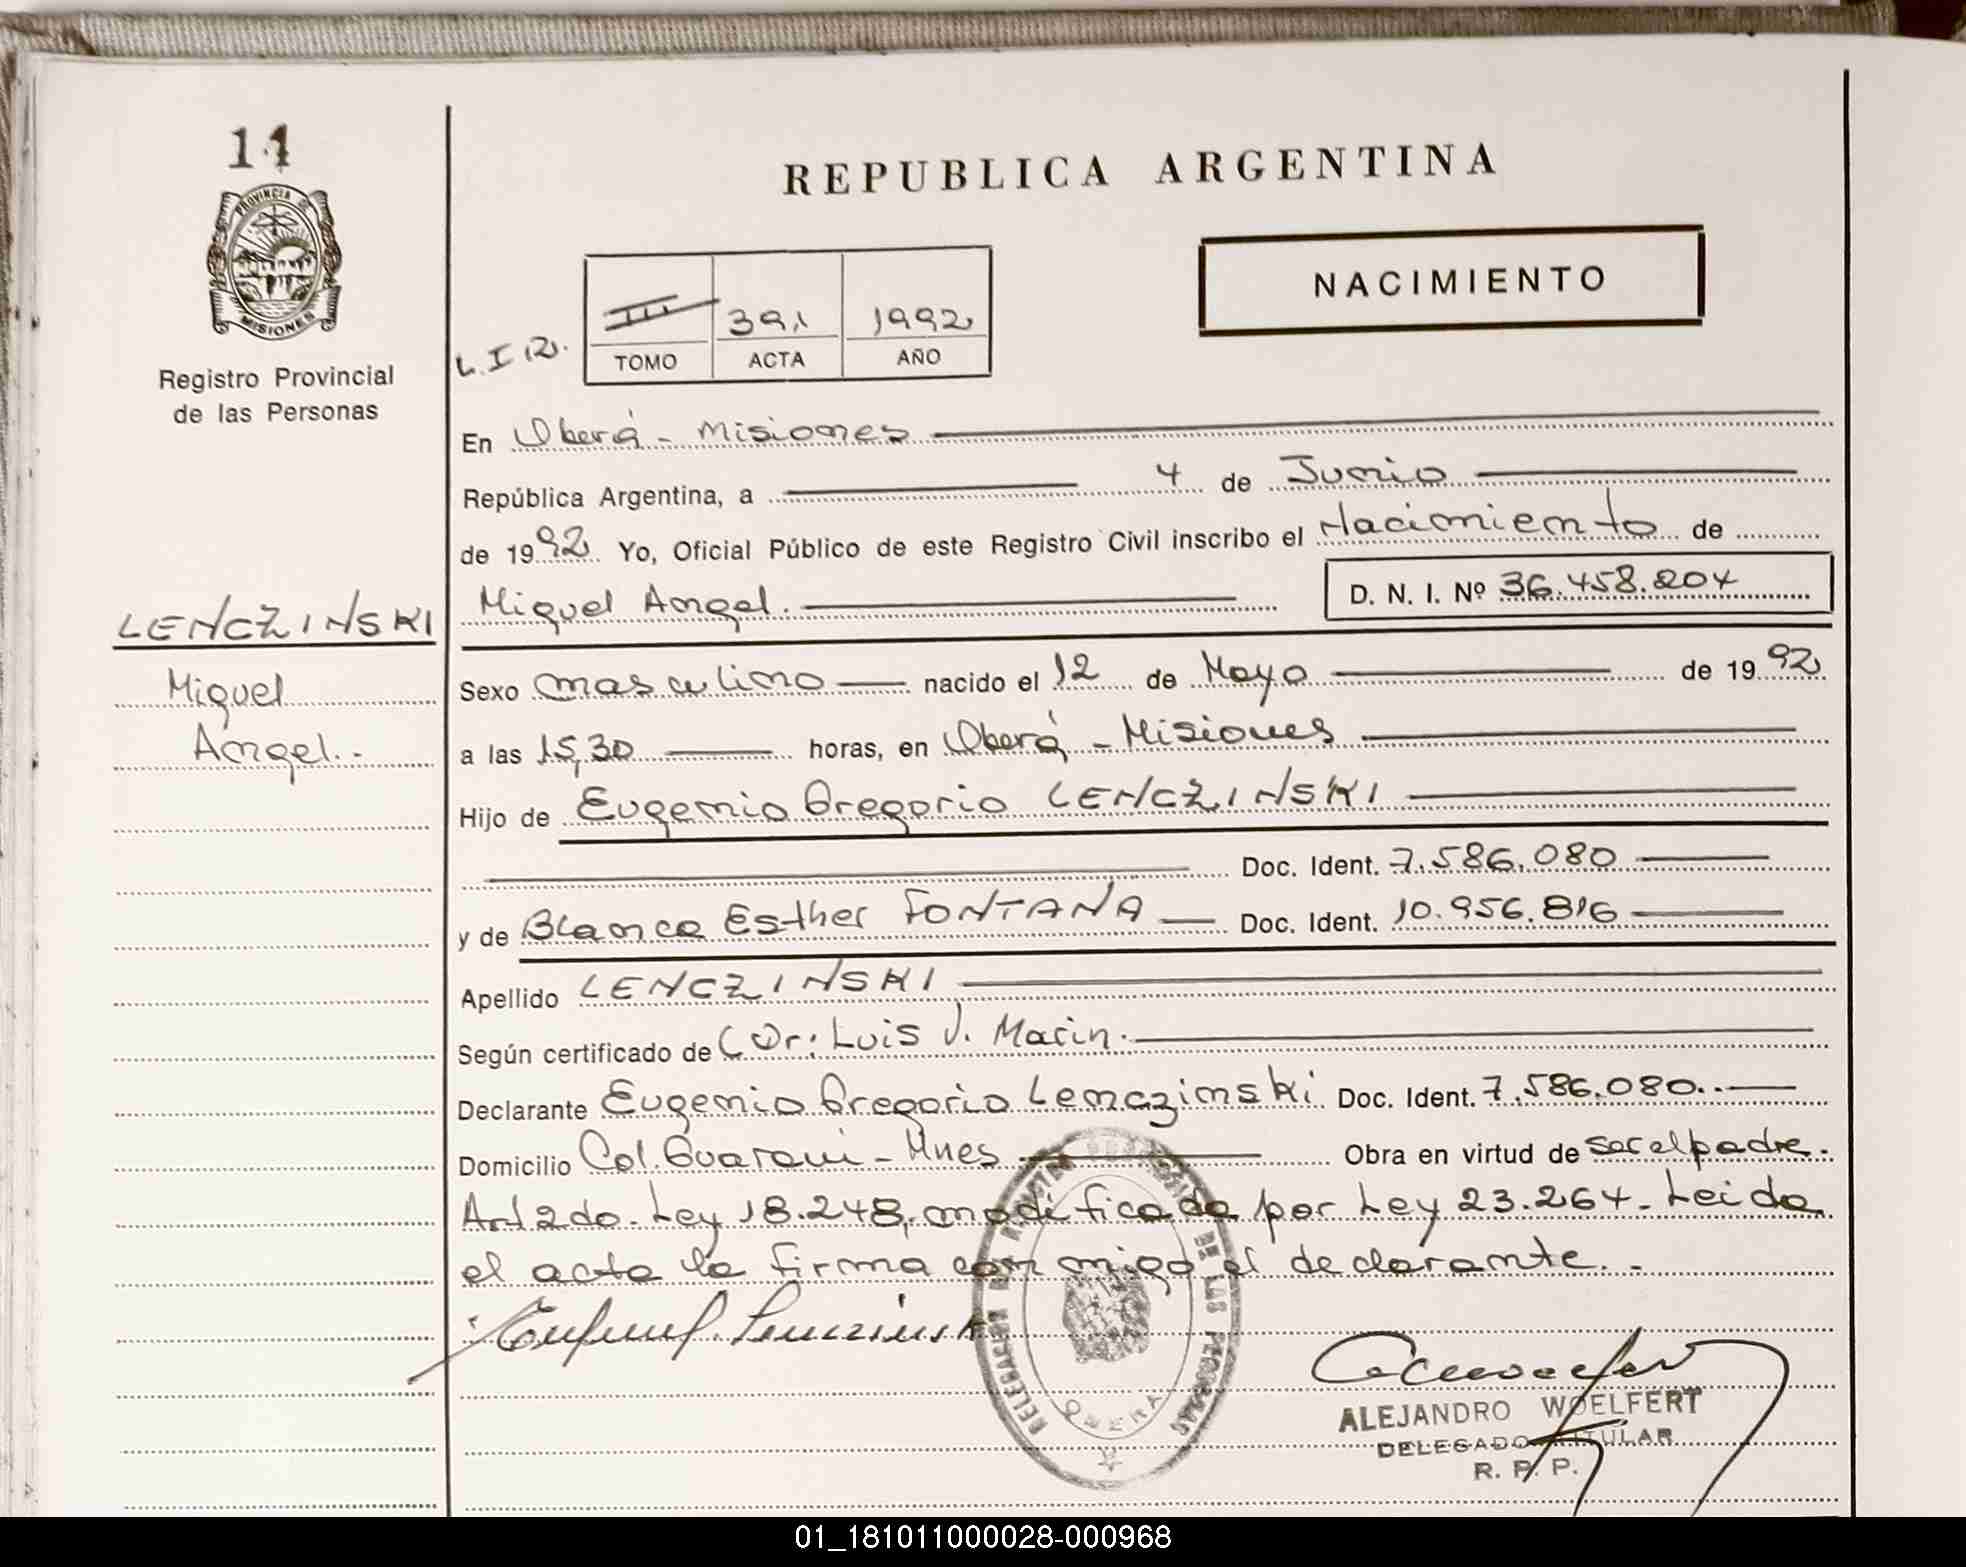 11
PROVINCIA DE
MISIONES
Registro Provincial
de las Personas
REPUBLICA ARGENTINA
NACIMIENTO
L. I (2).
III 391 1992
TOMO ACTA AÑO
En Oberá - Misiones
República Argentina, a 4 de Junio
de 1992 Yo, Oficial Público de este Registro Civil inscribo el Nacimiento de
Miguel Angel. D. N. I. Nº 36.458.204
LENCZINSKI
Miguel
Angel.-
Sexo masculino nacido el 12 de Mayo de 1992
a las 15,30 horas, en Oberá - Misiones
Hijo de Eugenio Gregorio LENCZINSKI
Doc. Ident. 7.586.080
y de Blanca Esther FONTANA Doc. Ident. 10.956.816
Apellido LENCZINSKI
Según certificado de Dr: Luis J. Marin.
Declarante Eugenio Gregorio Lenczinski Doc. Ident. 7.586.080.-
Domicilio Col. Guarani - Mnes Obra en virtud de ser el padre.
Art 2do. Ley 18.248, modificada por Ley 23.264. Leida
el acta la firma conmigo el declarante.-
DELEGACION DEL REGISTRO DE LAS PERSONAS
OBERA
ALEJANDRO WOELFERT
DELEGADO TITULAR
R. P. P.
01_181011000028-000968